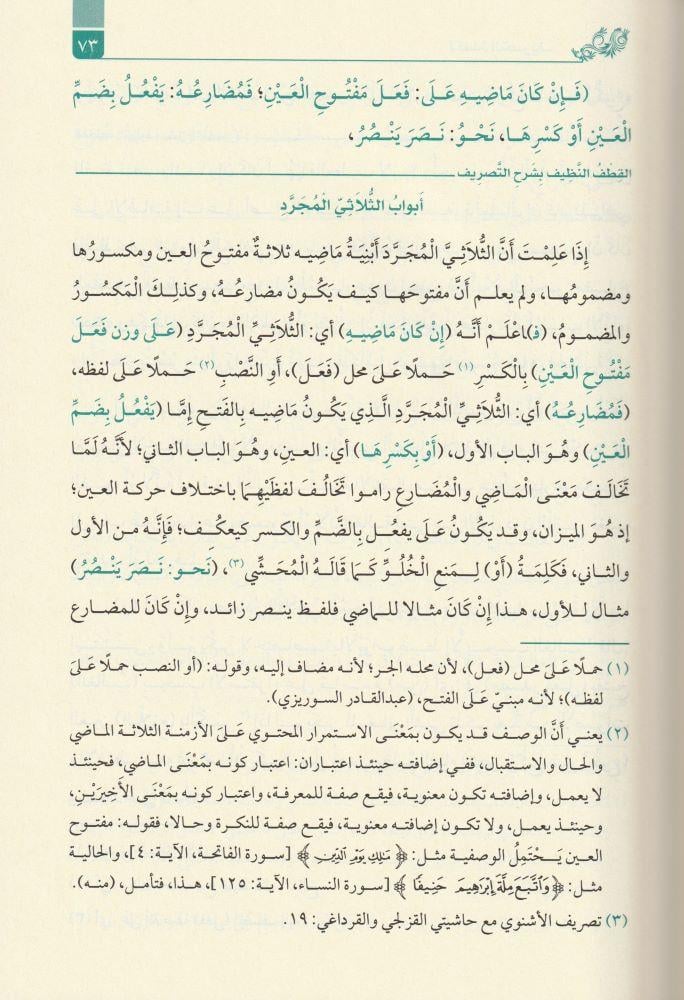 ٧٣
﴿فَإِنْ كَانَ مَاضِيهِ عَلَى: فَعَلَ مَفْتُوحِ الْعَيْنِ؛ فَمُضَارِعُهُ: يَفْعُلُ بِضَمِّ
الْعَيْنِ أَوْ كَسْرِهَا، نَحْوُ: نَصَرَ يَنْصُرُ،
القِطْفُ النَّظِيف بِشَرحِ التَّصرِيف
أَبوابُ الثُّلَاثِيِّ الْمُجَرَّدِ
إِذَا عَلِمْتَ أَنَّ الثُّلَاثِيَّ الْمُجَرَّدَ أَبْنِيَةُ مَاضِيه ثلاثةٌ مفتوحُ العين ومكسورُها
ومضمومُها، ولم يعلم أَنَّ مفتوحَها كيف يَكُونُ مضارعُهُ، وكذلِكَ الْمَكسُورُ
والمضمومُ، (فَـ)اعْلَمْ أَنَّهُ (إِنْ كَانَ مَاضِيهِ) أي: الثُّلَاثِيِّ الْمُجَرَّدِ (عَلَى وزن فَعَلَ
مَفْتُوحِ الْعَيْنِ) بِالْكَسْرِ(١) حَملًا عَلَىَ محل (فَعَلَ)، أَوِ النَّصْبِ(٢) حَملًا عَلَى لفظه،
(فَمُضَارِعُهُ) أي: الثُّلَاثِيِّ الْمُجَرَّدِ الَّذِي يَكُونُ مَاضِيه بِالفَتحِ إِمَّا (يَفْعُلُ بِضَمِّ
الْعَيْنِ) وهُوَ الباب الأول، (أَوْ بِكَسْرِهَا) أي: العينِ، وهُوَ الباب الثاني؛ لأَنَّهُ لَمَّا
تَخَالَفَ مَعْنَى الْمَاضِي والْمُضَارِعِ راموا تَخَالُفَ لفظَيْهِمَا باختلاف حركة العين؛
إذ هُوَ الميزان، وقد يَكُونُ عَلَىَ يفعُلِ بِالضَّمِّ والكسر كيعكُِف؛ فإِنَّهُ من الأول
والثاني، فَكَلِمَةُ (أَوْ) لِـمَنعِ الْخُلُوِّ كَمَا قَالَهُ الْمُحَشِّي(٣)، (نَحو: نَصَرَ يَنْصُرُ)
مثال للأول، هذا إِنْ كَانَ مثالا للماضي فلفظ ينصر زائد، وإِنْ كَانَ للمضارع
(١) حملًا عَلَىَ محل (فعل)، لأن محله الجر؛ لأنه مضاف إليه، وقوله: (أو النصب حملًا عَلىَ
لفظه)؛ لأنه مبنيّ عَلَى الفتح، (عبدالقادر السوريزي).
(٢) يعني أَنَّ الوصف قد يكون بمَعْنَى الاستمرار المحتوي عَلَىَ الأزمنة الثلاثة الماضي
والحال والاستقبال، ففي إضافته حينئذ اعتباران: اعتبار كونه بمَعْنَى الماضي، فحينئذ
لا يعمل، وإضافته تكون معنوية، فيقع صفة للمعرفة، واعتبار كونه بمَعْنَى الأَخِيرَيْنِ،
وحينئذ يعمل، ولا تكون إضافته معنوية، فيقع صفة للنكرة وحالا، فقوله: مفتوح
العين يَحْتَمِلُ الوصفية مثل: ﴿مَـٰلِكِ يَوْمِ ٱلدِّينِ﴾ [سورة الفاتحة، الآية: ٤]، والحالية
مثل: ﴿وَٱتَّبَعَ مِلَّةَ إِبْرَٰهِيمَ حَنِيفًا﴾ [سورة النساء، الآية: ١٢٥]، هذا، فتأمل، (منه).
(٣) تصريف الأشنوي مع حاشيتي القزلجي والقرداغي: ١٩.